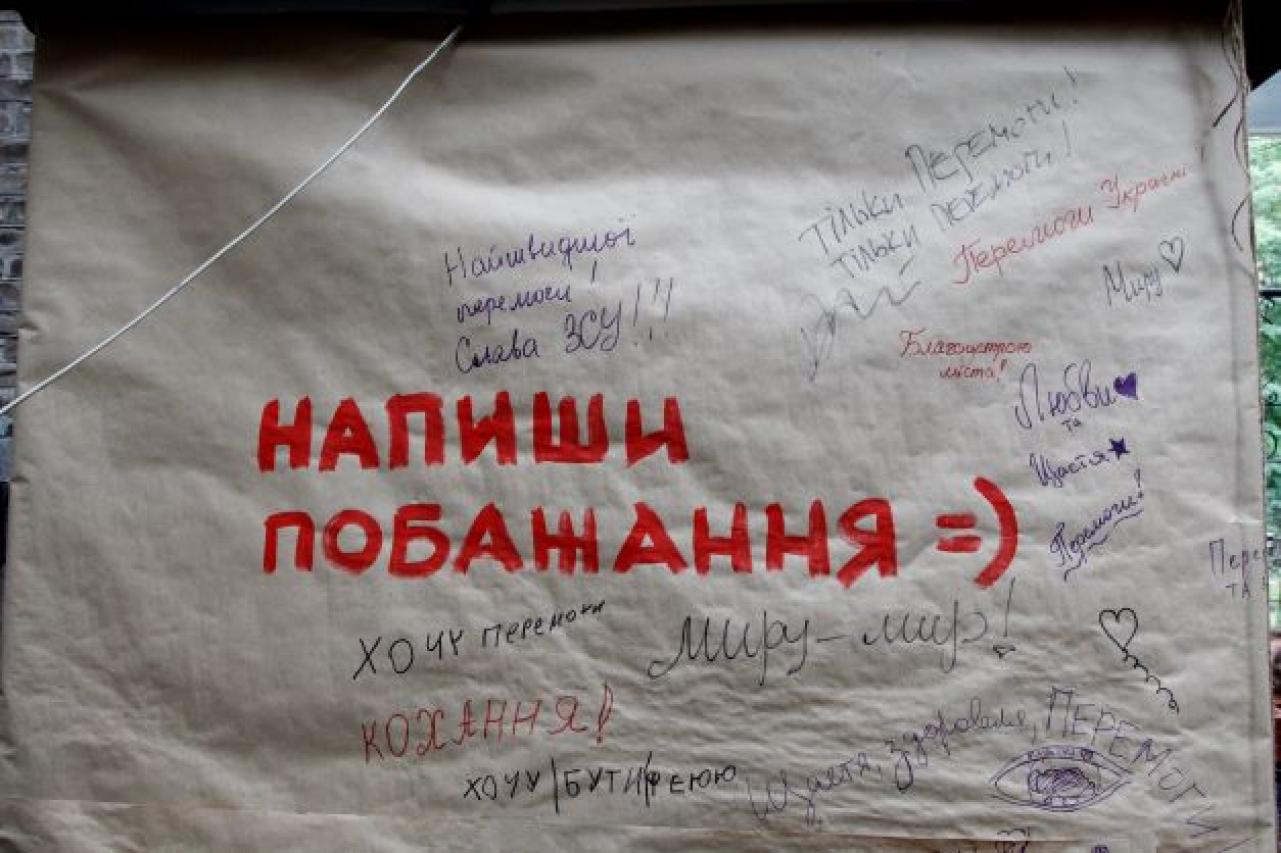 ТІЛЬКИ ПЕРЕМОГИ!
ТІЛЬКИ ПЕРЕМОГИ!
Перемоги Україні
Миру
Найшвидшої
перемоги!
Слава ЗСУ!!!
Благоустрою
міста!
Любви
та
Щастя
Перемоги!
НАПИШИ
ПОБАЖАННЯ =)
Пере
ТА
ХОЧУ перемоги
Миру-мир!
КОХАННЯ!
ХОЧУ БУТИ ФЕЮЮ
Щастя, здоровля, ПЕРЕМОГИ